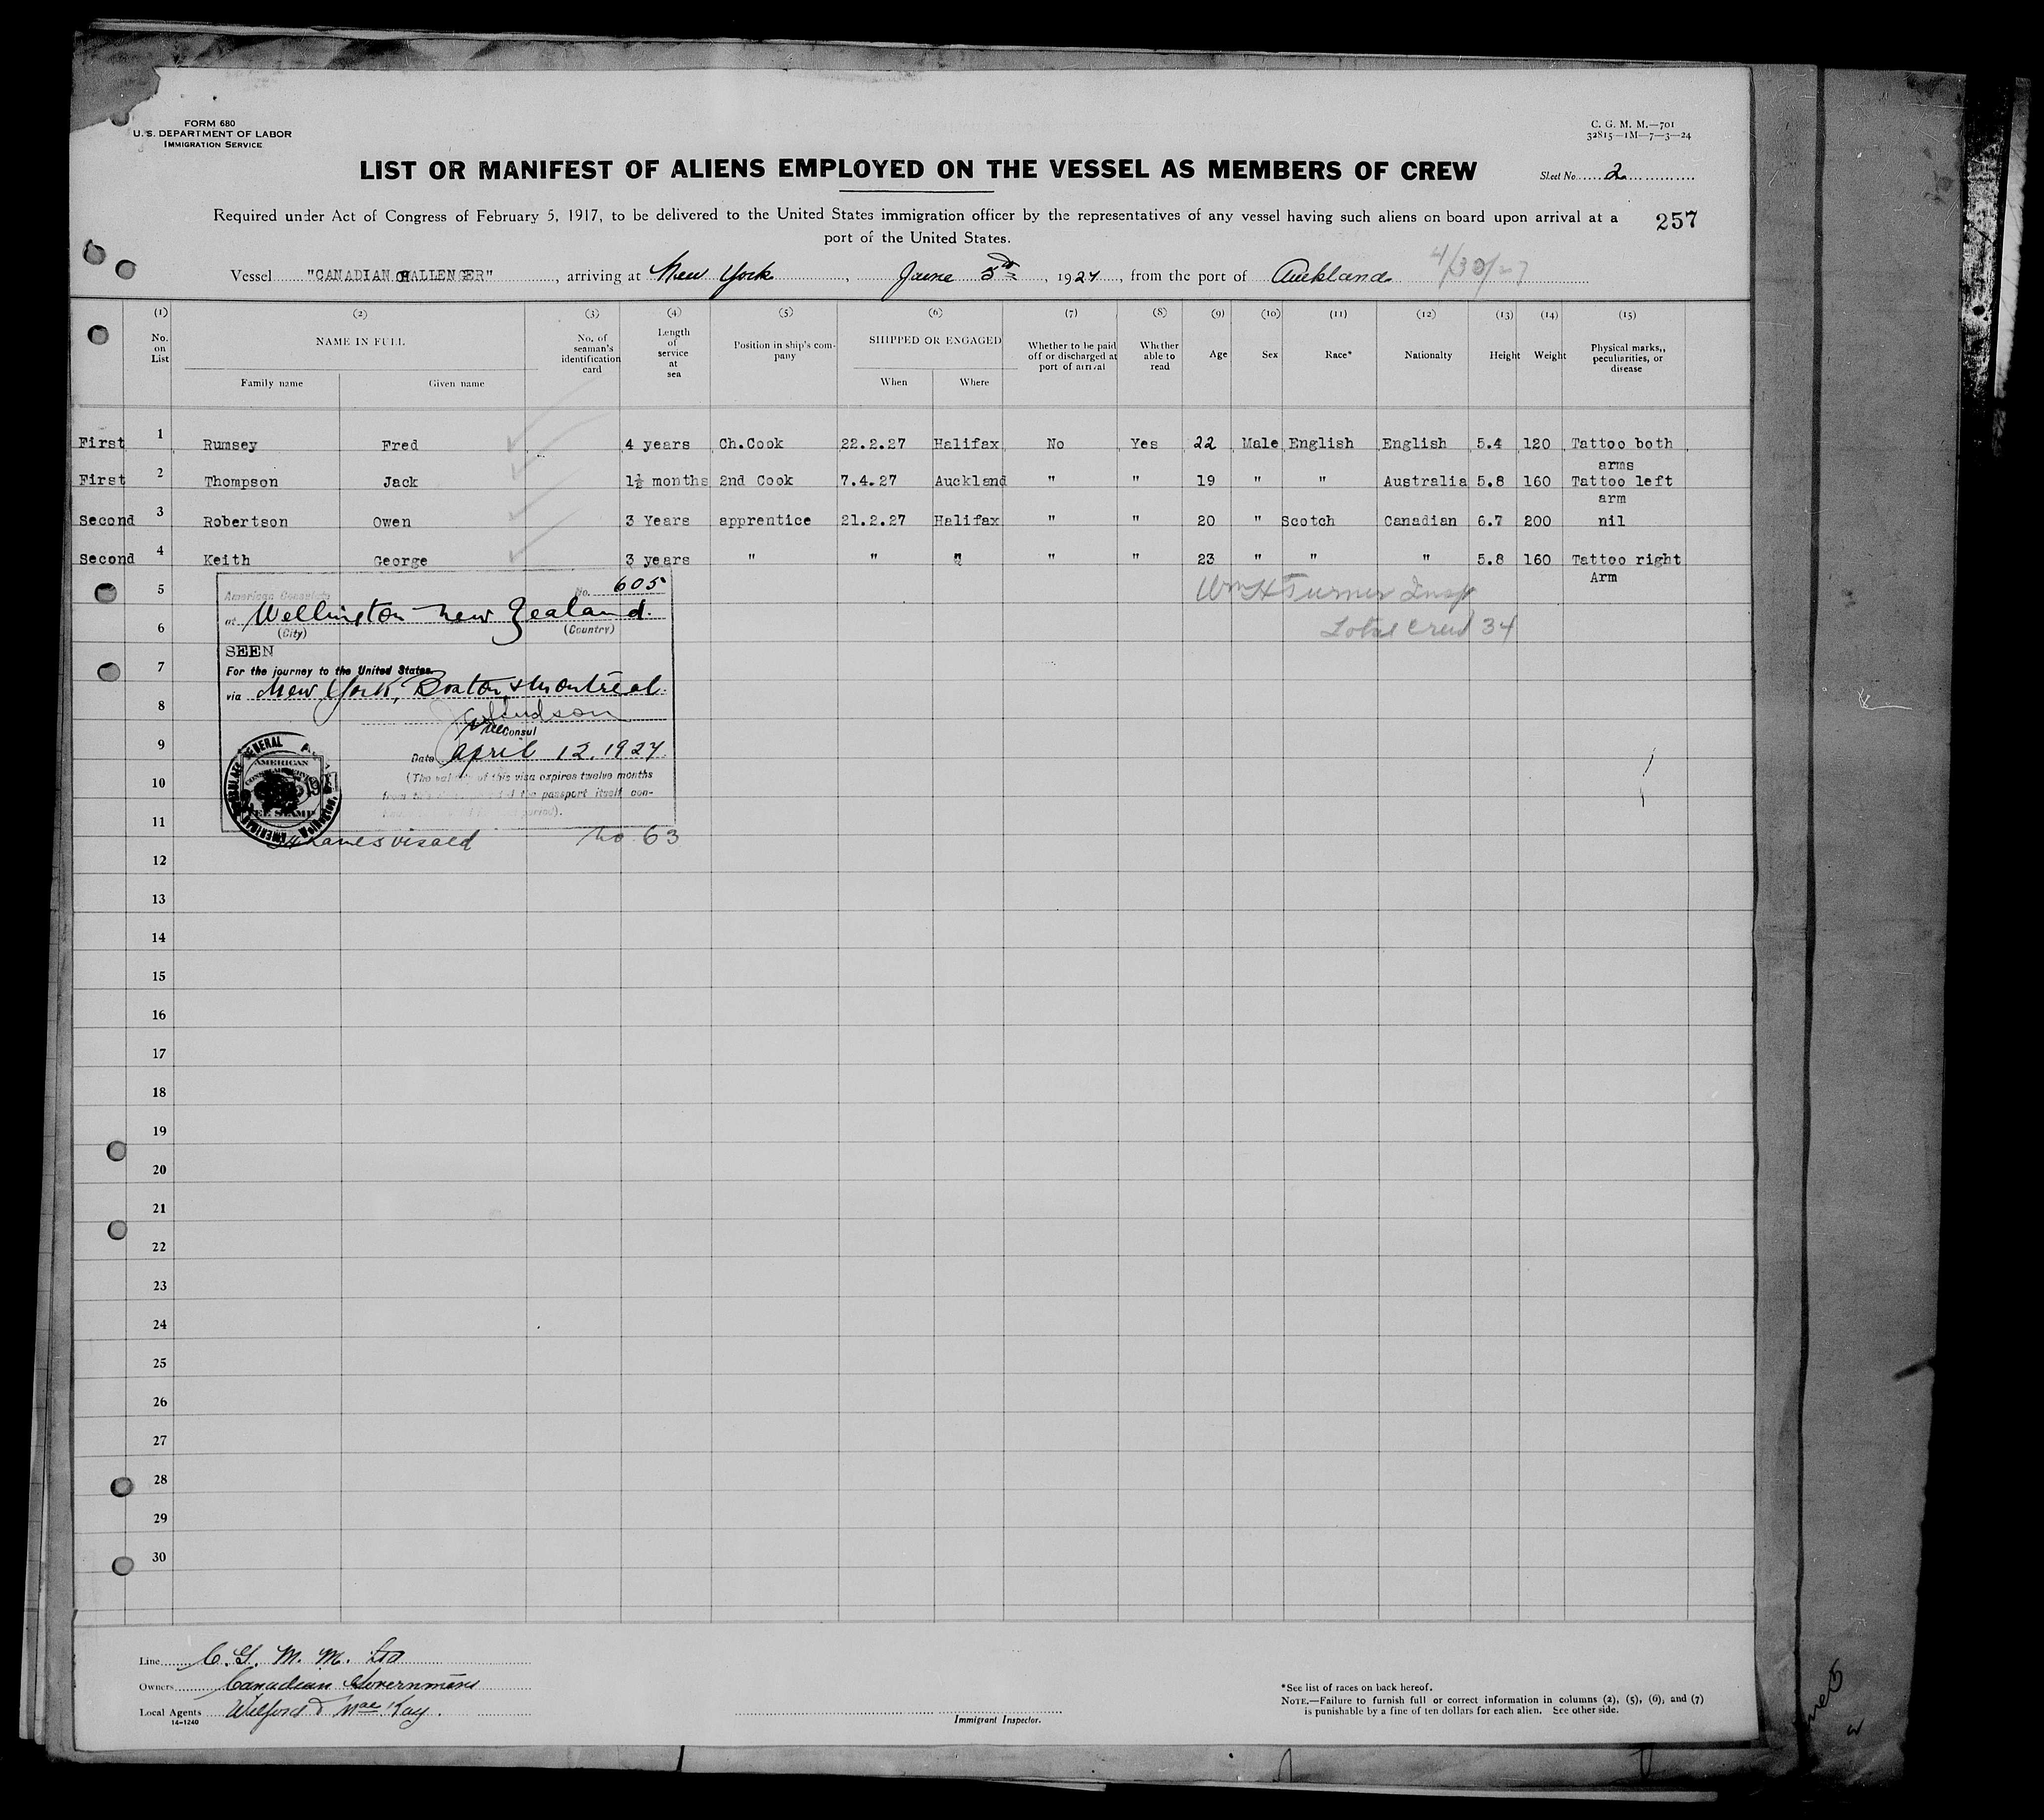 FORM 680
U. S. DEPARTMENT OF LABOR
IMMIGRATION SERVICE
C. G. M. M.—701
32815—1M—7—3—24
LIST OR MANIFEST OF ALIENS EMPLOYED ON THE VESSEL AS MEMBERS OF CREW
Sheet No. 2
Required under Act of Congress of February 5, 1917, to be delivered to the United States immigration officer by the representatives of any vessel having such aliens on board upon arrival at a
port of the United States.
257
Vessel "CANADIAN CHALLENGER", arriving at New York, June 5th, 1927, from the port of Auckland 4/30/27
(1) (2) (3) (4) (5) (6) (7) (8) (9) (10) (11) (12) (13) (14) (15)
No. on List NAME IN FULL No. of seaman's identification card Length of service at sea Position in ship's company SHIPPED OR ENGAGED Whether to be paid off or discharged at port of arrival Whether able to read Age Sex Race* Nationalty Height Weight Physical marks,, peculiarities, or disease
Family name Given name When Where
First 1 Rumsey Fred 4 years Ch.Cook 22.2.27 Halifax No Yes 22 Male English English 5.4 120 Tattoo both
arms
First 2 Thompson Jack 1½ months 2nd Cook 7.4.27 Auckland " " 19 " " Australia 5.8 160 Tattoo left
arm
Second 3 Robertson Owen 3 Years apprentice 21.2.27 Halifax " " 20 " Scotch Canadian 6.7 200 nil
Second 4 Keith George 3 years " " " " " 23 " " " 5.8 160 Tattoo right
Arm
5
American Consulate No. 605
Wm H Turner Insp
at Wellington New Zealand.
(City) (Country)
6
Total Crew 34
SEEN
7
For the journey to the United States.
via New York, Boston & Montreal.
8
Vice Consul
9
Date April 12. 1927.
10
(The validity of this visa expires twelve months
from this date provided the passport itself con-
11
AMERICAN CONSULATE GENERAL
AMERICAN
FEE STAMP
visaed No. 63
12
13
14
15
16
17
18
19
20
21
22
23
24
25
26
27
28
29
30
Line C. G. M. M. Ltd
Owners Canadian Government
Local Agents Welford & MacKay.
14-1240
Immigrant Inspector.
*See list of races on back hereof.
NOTE.—Failure to furnish full or correct information in columns (2), (5), (6), and (7)
is punishable by a fine of ten dollars for each alien. See other side.